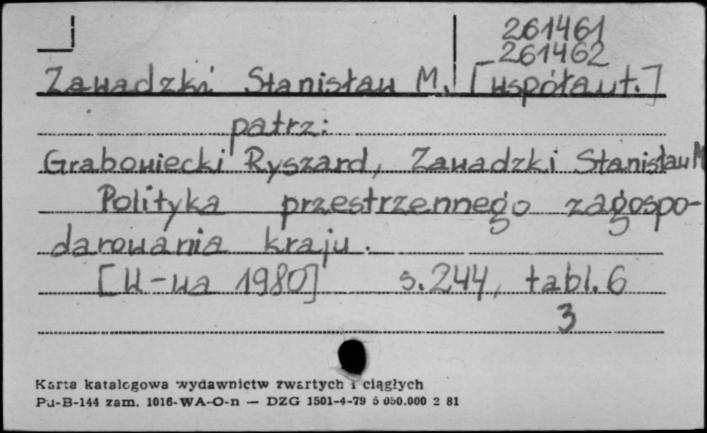 261461
261462
Zawadzki Stanisław M. [współaut.]
patrz:
Grabowiecki Ryszard, Zawadzki Stanisław M
Polityka przestrzennego zagospo-
darowania kraju.
[W-wa 1980] s. 244, tabl. 6
3
Karta katalogowa wydawnictw zwartych i ciągłych
Pu-B-144 zam. 1016-WA-O-n — DZG 1501-4-79 5 050.000 2 81